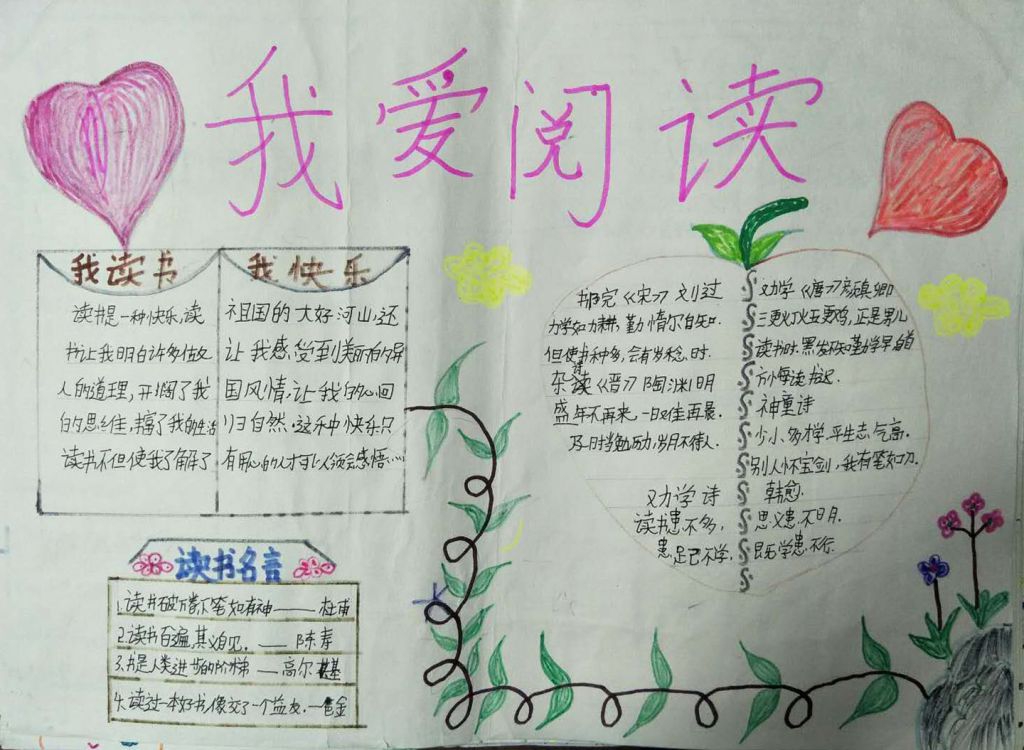 我爱阅读
我读书
我快乐
读书是一种快乐,读
书让我明白许多做
人的道理,开阔了我
的思维,丰富了我的生活
读书不但使我了解了
祖国的大好河山,还
让我感受到美丽的异
国风情,让我的心回
归自然。这乐中快乐只
有用心的人才可以领会感悟……
读书名言
1.读书破万卷下笔如有神——杜甫
2.读书百遍,其义自见.——陈寿
3.书是人类进步的阶梯—高尔基
4.读过一本好书,像交了一个益友.—臧克金
书院《宋》刘过
力学如力耕,勤惰尔自知.
但使书种多,会有岁稔时.
杂诗《晋》陶渊明
盛年不再来,一日难再晨.
及时当勉励,岁月不待人.
劝学诗
读书患不多,
患足己不学,
劝学《唐》颜真卿
三更灯火五更鸡,正是男儿
读书时.黑发不知勤学早,白首
方悔读书迟.
神童诗
少小多才学,平生志气高.
别人怀宝剑,我有笔如刀.
韩愈.
思义患不明.
既学患不行.